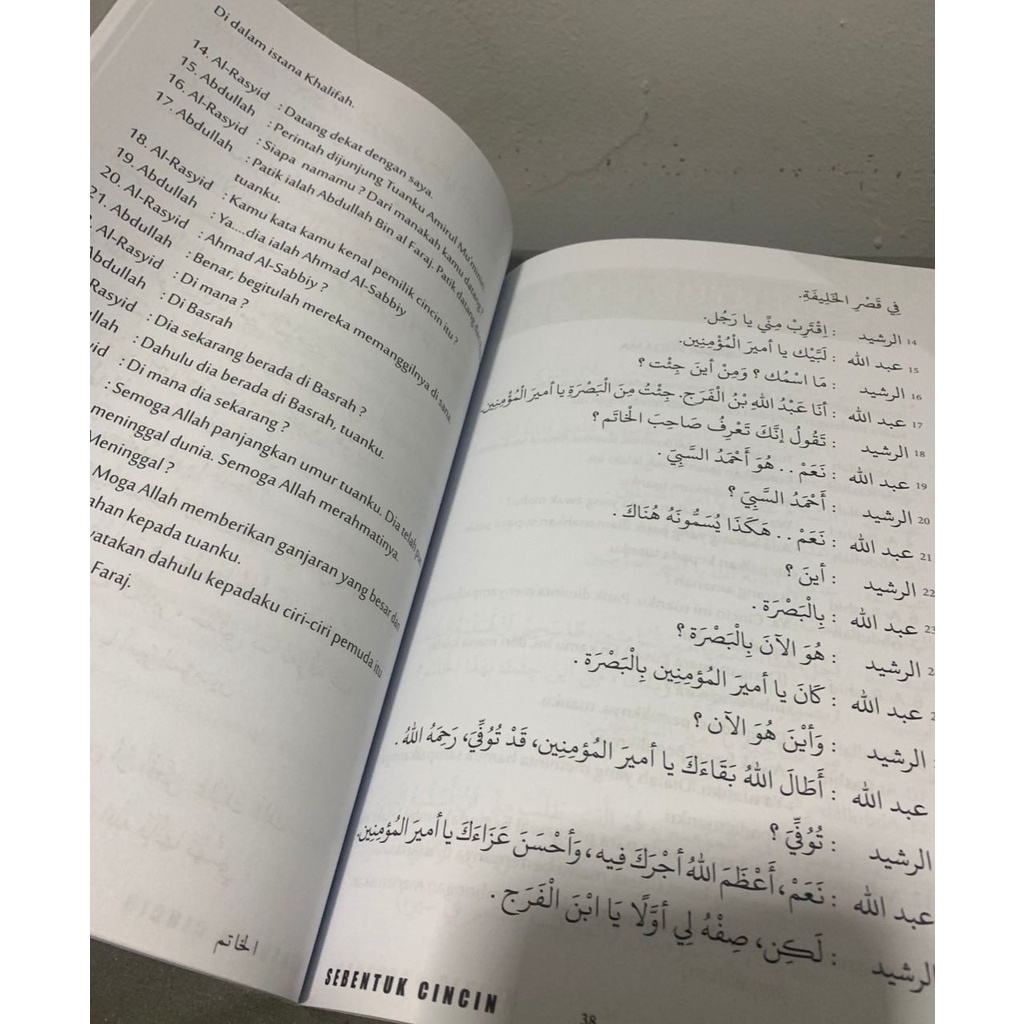 Di dalam istana Khalifah.
14. Al-Rasyid : Datang dekat dengan saya.
15. Abdullah : Perintah dijunjung Tuanku Amirul Mu'minin.
16. Al-Rasyid : Siapa namamu ? Dari manakah kamu datang?
17. Abdullah : Patik ialah Abdullah Bin al Faraj. Patik datang
tuanku.
18. Al-Rasyid : Kamu kata kamu kenal pemilik cincin itu ?
19. Abdullah : Ya....dia ialah Ahmad Al-Sabbiy
20. Al-Rasyid : Ahmad Al-Sabbiy ?
21. Abdullah : Benar, begitulah mereka memanggilnya di sana.
Al-Rasyid : Di mana ?
Abdullah : Di Basrah
Rasyid : Dia sekarang berada di Basrah ?
: Dahulu dia berada di Basrah, tuanku.
: Di mana dia sekarang ?
: Semoga Allah panjangkan umur tuanku. Dia telah
meninggal dunia. Semoga Allah merahmatinya.
Meninggal ?
Moga Allah memberikan ganjaran yang besar dan
kepada tuanku.
dahulu kepadaku ciri-ciri pemuda itu
Faraj.
الخاتم
في قَصْرِ الخَلِيفَةِ.
14 الرشيد : اِقْتَرِبْ مِنّي يا رَجُل.
15 عبد الله : لَبَّيْك يا أميرَ الْمُؤْمِنِين.
16 الرشيد : مَا اسْمُك ؟ وَمِنْ أينَ جِئْت ؟
17 عبد الله : أنَا عَبْدُ اللهِ بْنُ الْفَرَج. جِئْتُ مِنَ الْبَصْرَةِ يا أميرَ الْمُؤْمِنِين
18 الرشيد : تَقُولُ إنَّكَ تَعْرِفُ صَاحِبَ الخَاتَم ؟
19 عبد الله : نَعَمْ . . هُوَ أَحْمَدُ السَّبِيّ .
20 الرشيد : أَحْمَدُ السَّبِيّ ؟
21 عبد الله : نَعَمْ . . هَكَذَا يُسَمُّونَهُ هُنَاكَ .
22 الرشيد : أينَ ؟
23 عبد الله : بِالْبَصْرَة .
الرشيد : هُوَ الآنَ بِالْبَصْرَة ؟
عبد الله : كَانَ يا أميرَ المُؤمِنِين بِالْبَصْرَة .
الرشيد : وَأيْنَ هُوَ الآن ؟
عبد الله : أَطَالَ اللهُ بَقَاءَكَ يا أميرَ المُؤمِنِين، قَدْ تُوُفِّيَ، رَحِمَهُ اللهُ .
الرشيد : تُوُفِّيَ ؟
عبد الله : نَعَمْ، أَعْظَمَ اللهُ أجْرَكَ فِيه، وَأحْسَنَ عَزَاءَكَ يا أميرَ المُؤمِنِين.
الرشيد : لَكِن، صِفْهُ لِي أوَّلًا يَا ابْنَ الْفَرَج .
SEBENTUK CINCIN
38